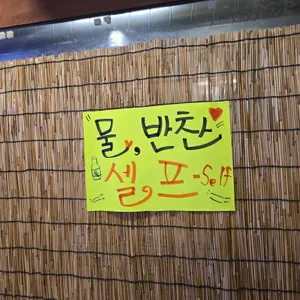 물, 반찬
셀, 프-Self